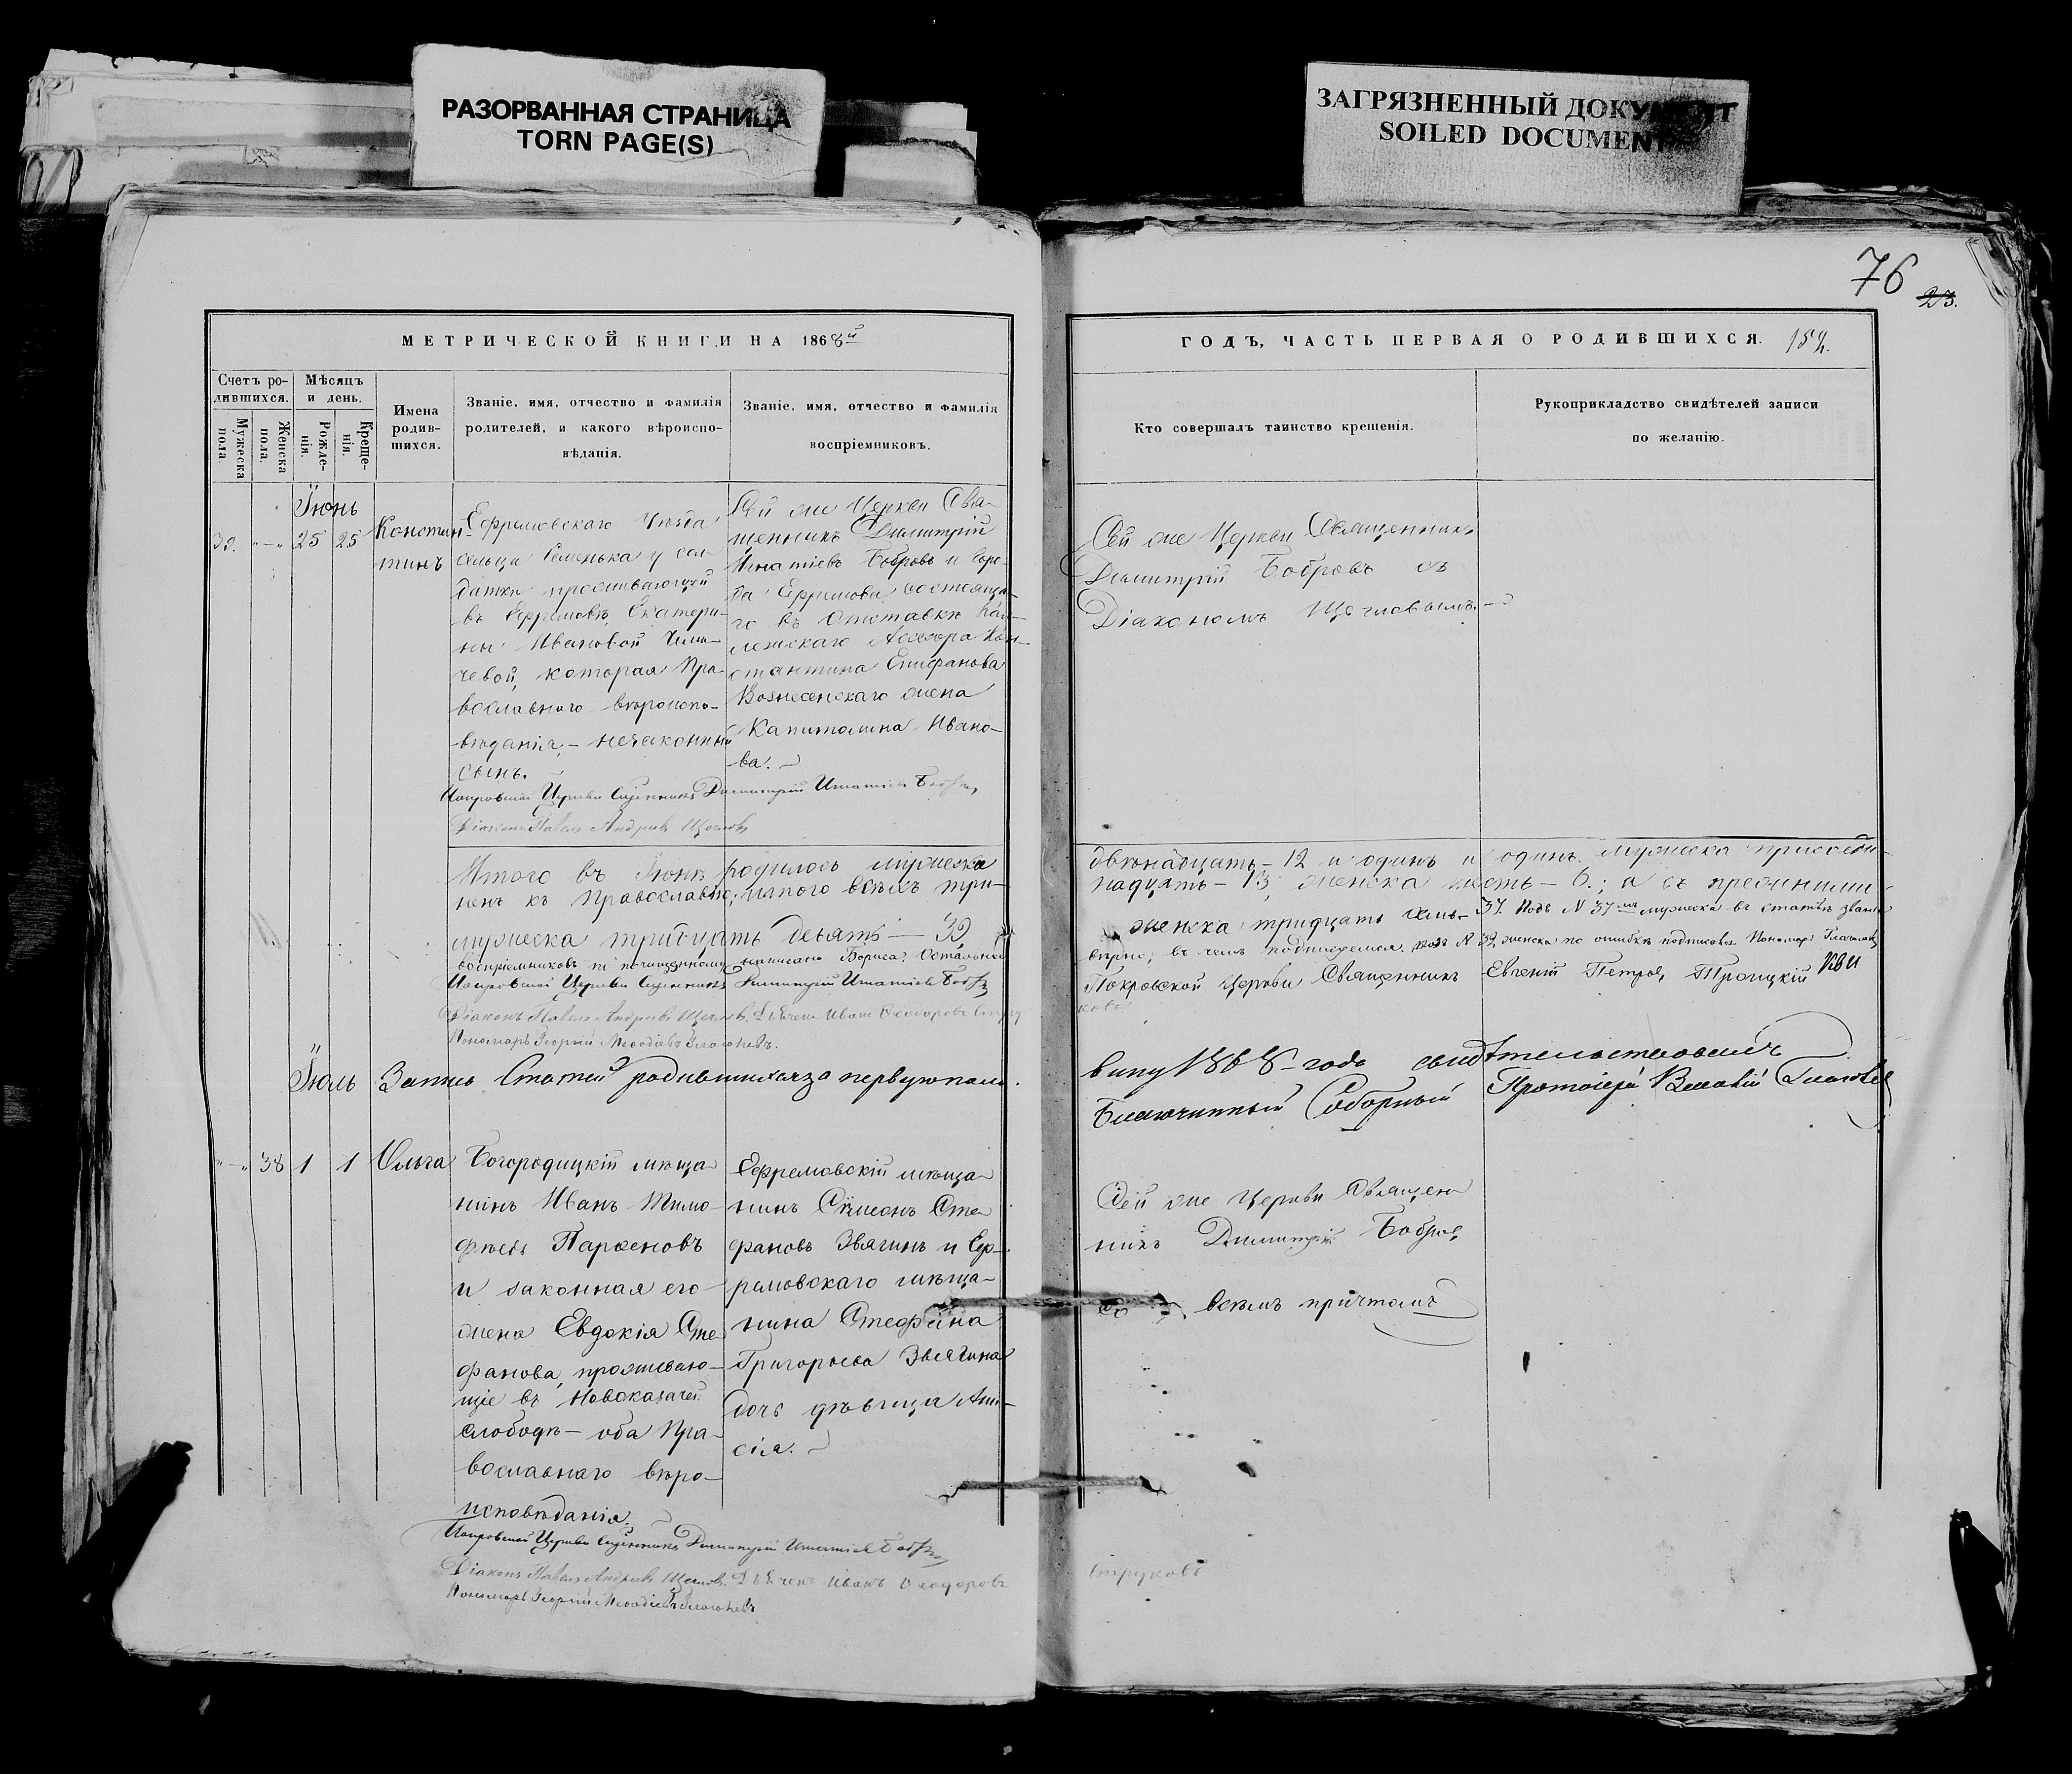 РАЗОРВАННАЯ СТРАНИЦА
TORN PAGE(S)
ЗАГРЯЗНЕННЫЙ ДОКУМЕНТ
SOILED DOCUMENT
76
23.
МЕТРИЧЕСКОЙ КНИГИ НА 1868й
Счетъ ро-
дившихся.
Мѣсяцъ
и день.
Мужеска
пола.
Женска
пола.
Рожде-
нія.
Креще-
нія.
Имена
родив-
шихся.
Званіе, имя, отчество и фамилія
родителей, и какого вѣроиспо-
вѣданія.
Званіе, имя, отчество и фамилія
воспріемниковъ.
Іюнь
39. 25 25
Констан-
тинъ
Ефремовскаго Уѣзда
сельца Семенька у сол
датки проживающей
въ Ефремовѣ, Екатери-
ны Ивановой
чевой, которая Пра-
вославнаго вѣроиспо-
вѣданія, – незаконный
сынъ.
Сей же Церкви Свя-
щенникъ Димитрій
Игнатіевъ Бобровъ и Горо-
да Ефремова состояща-
го въ отставкѣ Кол-
лежскаго Ассесора Кон-
стантина Епифанова
Вознесенскаго жена
Капитолина Ивано-
ва.
Покровской Церкви Священникъ Димитрій Игнатіевъ Бобровъ
Діаконъ Павелъ Андреевъ Щегловъ
Итого въ Іюнѣ родилось мужеска
ненъ къ Православію; итого всѣхъ три-
мужеска тридцать девять – 39,
воспріемниковъ по почищенному написано Бориса. Остальное
Покровской Церкви Священникъ Димитрій Игнатіевъ Бобровъ
Діаконъ Павелъ Андреевъ Щегловъ. Дьячекъ Иванъ Ѳеодоровъ
Пономарь Георгій Меѳодіевъ Глаголевъ.
Іюль
Запись Статей родившихся за первую поло
38 1 1
Ольга
Богородицкій мѣща
нинъ Иванъ Тимо-
фѣевъ Парѳеновъ
и законная его
жена Евдокія Сте
фанова, проживаю-
щіе въ Новоказачей
слободѣ – оба Пра-
вославнаго вѣро-
исповѣданія.
Ефремовскій мѣща
нинъ Сѵмеонъ Сте
фановъ Звягинъ и Еф-
ремовскаго мѣща-
нина Стефана
Григорьева Звягина
дочь дѣвица Ани-
сія.
Покровской Церкви Священникъ Димитрій Игнатіевъ Бобровъ
Діаконъ Павелъ Андреевъ Щегловъ. Дьячекъ Иванъ Ѳеодоровъ
Пономарь Георгій Меѳодіевъ Глаголевъ
ГОДЪ, ЧАСТЬ ПЕРВАЯ О РОДИВШИХСЯ.
Кто совершалъ таинство крещенія.
Рукоприкладство свидѣтелей записи
по желанію.
Сей же Церкви Священникъ
Димитрій Бобровъ съ
Діакономъ Щегловымъ.
двѣнадцать – 12 и одинъ и одинъ мужеска присоеди-
надцать – 13, женска шесть – 6.; а съ прежними
женска тридцать семь – 37. Подъ N 37мъ мужеска въ статьѣ званія
вѣрно; въ чемъ подписуемся. подъ N 32 женска по ошибкѣ подписовъ Пономарь Глаголевъ
Покровской Церкви Священникъ Евгеній Петровъ Троицкій
вину 1868 года свидѣтельствовалъ
Благочинный Соборный Протоіерей Глаголевъ
Сей же Церкви Священ
никъ Димитрій Бобровъ
со всѣмъ причтомъ
Струковъ